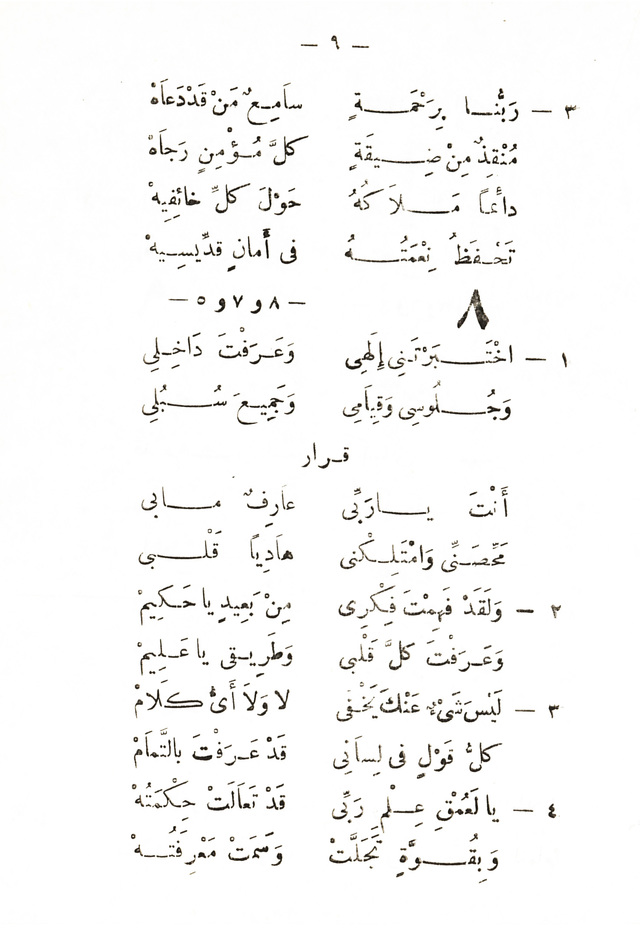 — ٩ —
٣ — رَبُّنَا بِرَحْمَةٍ سَامِعٌ مَنْ قَدْ دَعَاهْ
مُنْقِذٌ مِنْ ضِيقَةٍ كلَّ مُؤْمِنٍ رَجَاهْ
دائماً مَلاَكهُ حَوْلَ كلِّ خائِفِيهْ
تَحْفَظُ نِعْمَتُهُ فى أَمانٍ قدِّيسِيهْ
٨ — ٨ و ٧ و ٥ —
١ — اخْتَبَرْتَنِى إِلَهِى وَعَرَفْتَ دَاخِلِى
وَجُلُوسِى وَقِيَامِى وَجَمِيعَ سُبُلِى
قرار
أَنْتَ يارَبِّى عارِفٌ مابى
مَحِّصَنِّى وَامْتَلِكْنى هادِيًا قَلْبى
٢ — وَلَقَدْ فَهِمْتَ فِكْرِى مِنْ بَعِيدٍ يا حَكِيمْ
وَعَرَفْتَ كلَّ قَلْبى وَطَرِيقى يا عَلِيمْ
٣ — لَيْسَ شَىْءٌ عَنْكَ يَخْفَى لا وَلاَ أَىُّ كَلاَمْ
كلُّ قَوْلٍ فى لِسَانِى قَدْ عَرَفْتَ بالتَّمَامْ
٤ — يا لَعُمْقِ عِلْمِ رَبِّى قَدْ تَعَالَتْ حِكْمَتُهْ
وَبِقُوَّةٍ تَجَلَّتْ وَسَمَتْ مَعْرِفَتُهْ